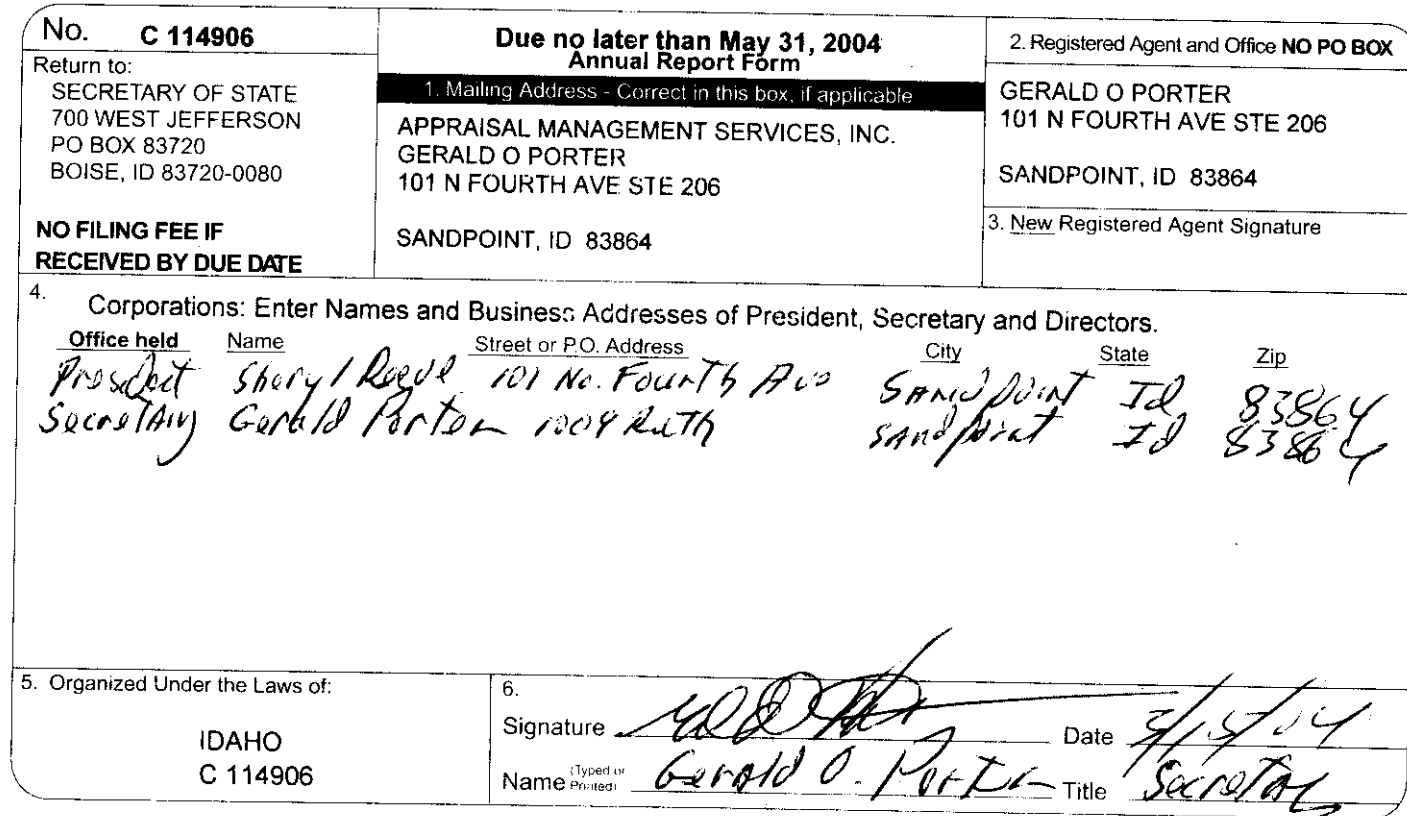 No. C 114906
Return to:
SECRETARY OF STATE
700 WEST JEFFERSON
PO BOX 83720
BOISE, ID 83720-0080
NO FILING FEE IF
RECEIVED BY DUE DATE
Due no later than May 31, 2004
Annual Report Form
1. Mailing Address - Correct in this box, if applicable
APPRAISAL MANAGEMENT SERVICES, INC.
GERALD O PORTER
101 N FOURTH AVE STE 206
SANDPOINT, ID 83864
2. Registered Agent and Office NO PO BOX
GERALD O PORTER
101 N FOURTH AVE STE 206
SANDPOINT, ID 83864
3. New Registered Agent Signature
4. Corporations: Enter Names and Business Addresses of President, Secretary and Directors.
Office held Name Street or P.O. Address City State Zip
President Sheryl Reeve 101 No. Fourth Ave Sandpoint Id 83864
Secretary Gerald Porter 1004 Ruth Sandpoint Id 83864
5. Organized Under the Laws of:
IDAHO
C 114906
6.
Signature Date 3/15/04
Name (Typed or Printed) Gerald O. Porter Title Secretary